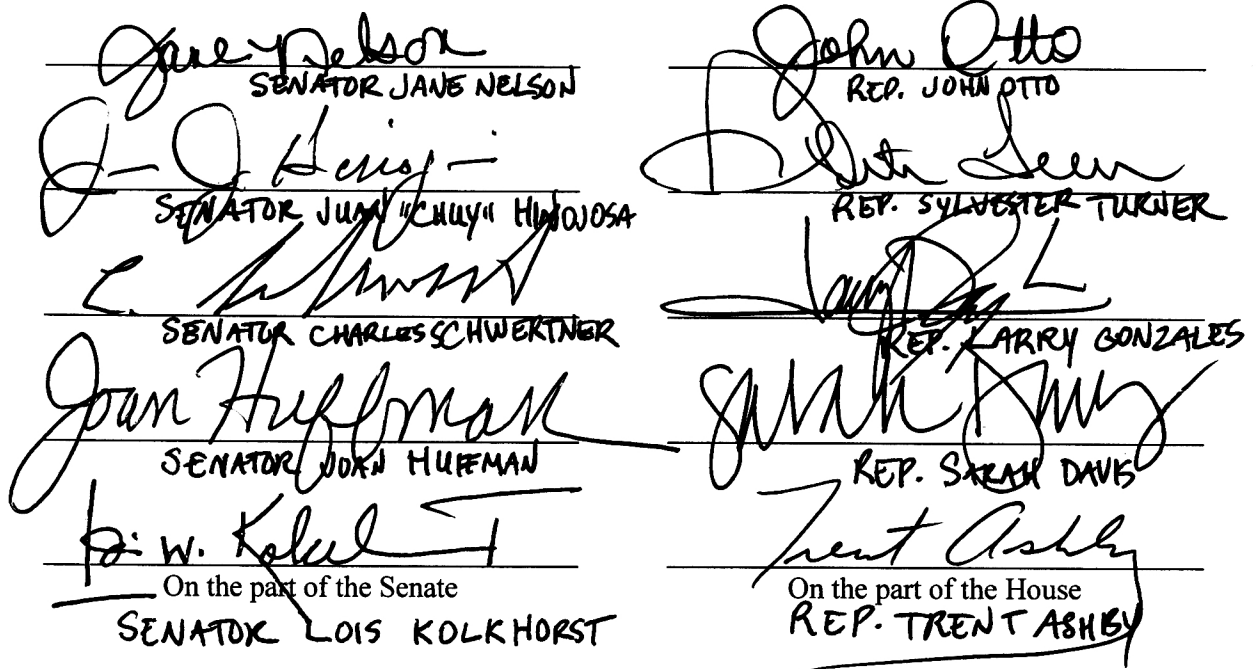 Jane Nelson
SENATOR JANE NELSON
SENATOR JUAN "CHUY" HINOJOSA
SENATOR CHARLES SCHWERTNER
Joan Huffman
SENATOR JOAN HUFFMAN
On the part of the Senate
SENATOR LOIS KOLKHORST
John Otto
REP. JOHN OTTO
REP. SYLVESTER TURNER
REP. LARRY GONZALES
Sarah Davis
REP. SARAH DAVIS
Trent Ashby
On the part of the House
REP. TRENT ASHBY